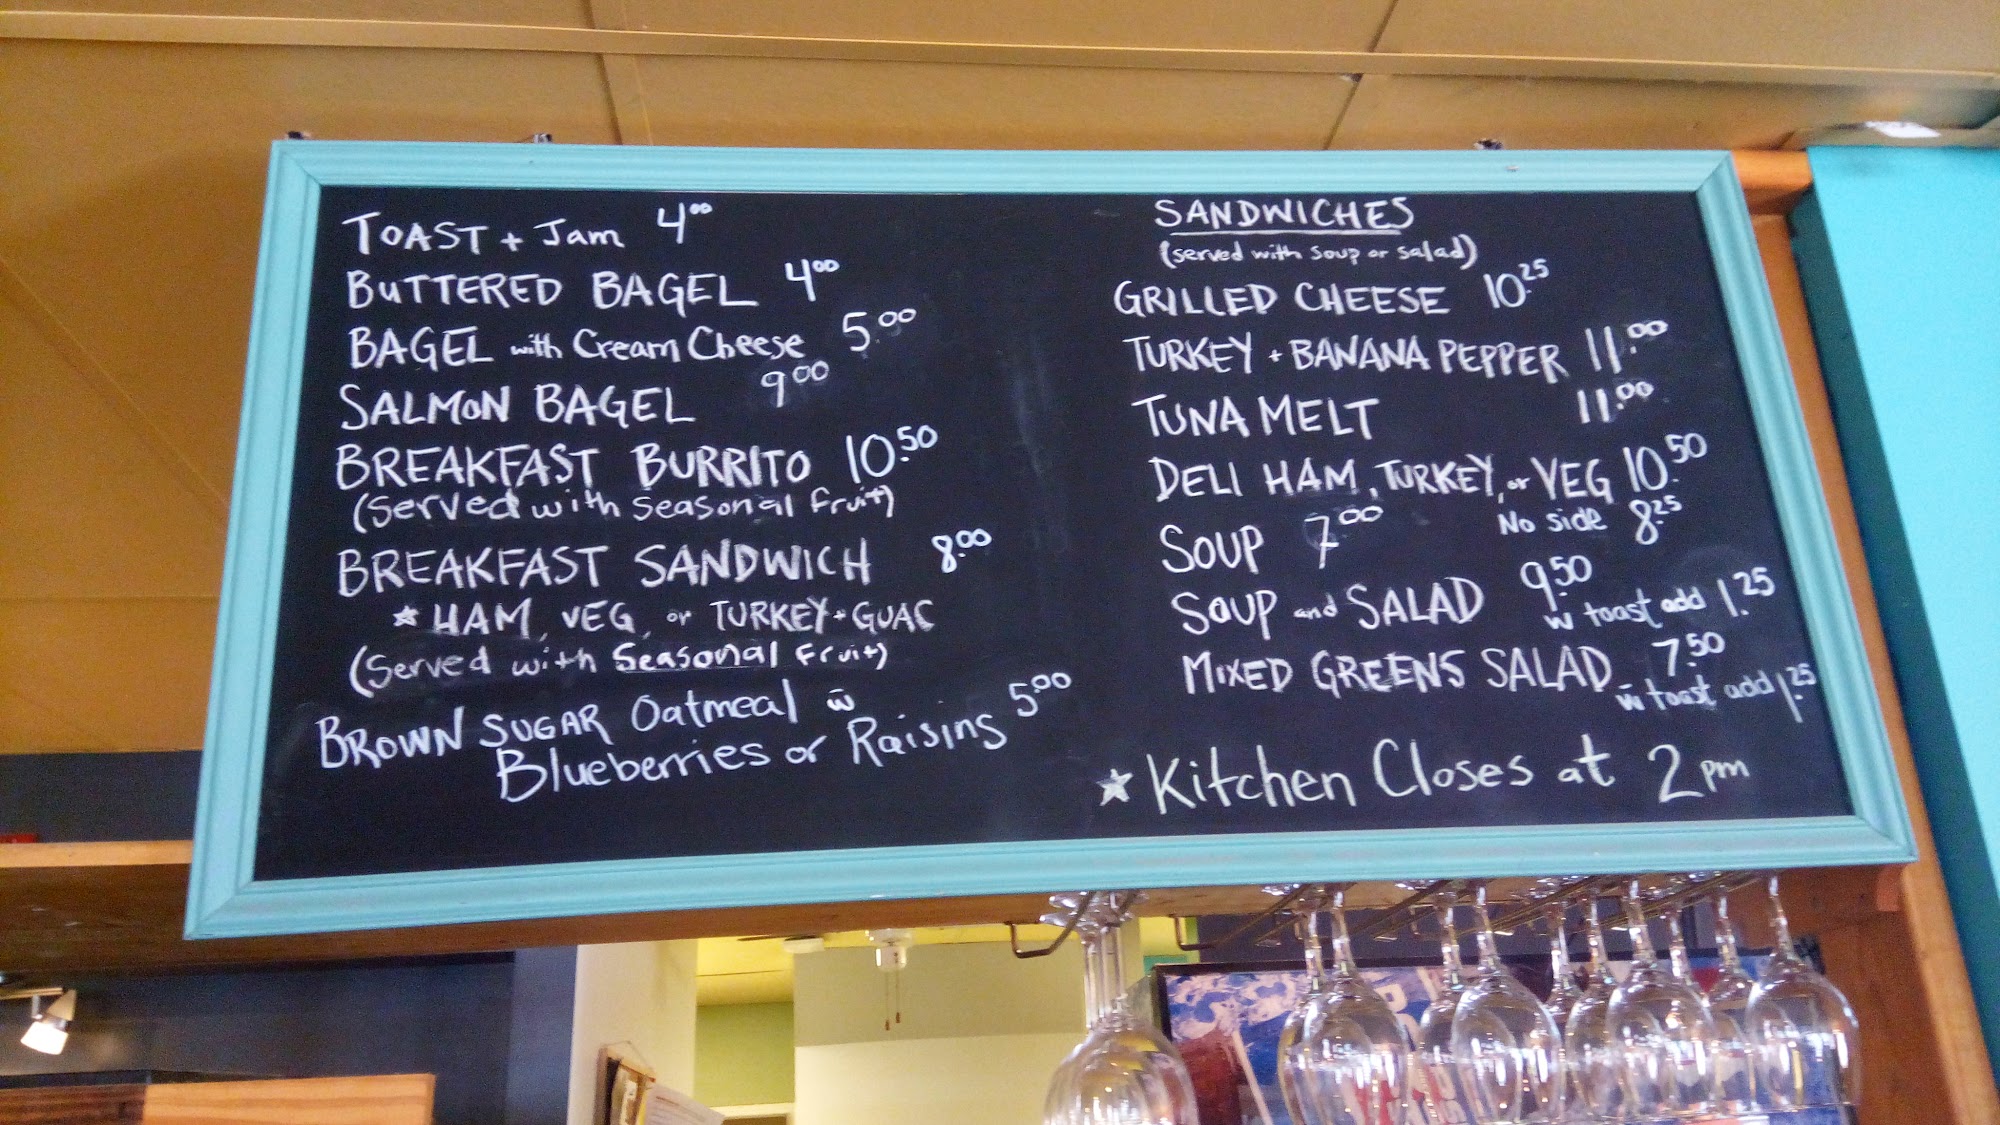 TOAST + Jam 4⁰⁰
BUTTERED BAGEL 4⁰⁰
BAGEL with Cream Cheese 5.⁰⁰
SALMON BAGEL 9⁰⁰
BREAKFAST BURRITO 10.⁵⁰
(Served with Seasonal Fruit)
BREAKFAST SANDWICH 8.⁰⁰
★ HAM, VEG, or TURKEY + GUAC
(Served with Seasonal Fruit)
BROWN SUGAR Oatmeal w̄
Blueberries or Raisins 5.⁰⁰
SANDWICHES
(served with soup or salad)
GRILLED CHEESE 10.²⁵
TURKEY + BANANA PEPPER 11.⁰⁰
TUNA MELT 11.⁰⁰
DELI HAM, TURKEY, or VEG 10.⁵⁰
No side 8.²⁵
SOUP 7⁰⁰
SOUP and SALAD 9.⁵⁰
w toast add 1.²⁵
MIXED GREENS SALAD 7.⁵⁰
w̄ toast add 1.²⁵
★ Kitchen Closes at 2pm